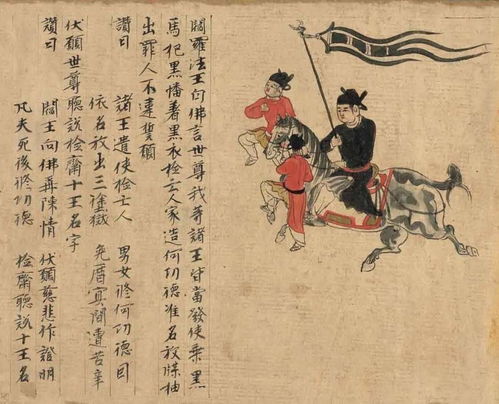 閻羅法王向佛言世尊我等諸王皆當發使乘黑
馬把黑幡著黑衣檢亡人家造何功德准名放牒抽
出罪人不違誓願
讚曰 諸王遣使檢亡人 男女修何功德因
依名放出三塗獄 免歷冥間遭苦辛
伏願世尊聽說檢齋十王名字
讚曰 閻王向佛再陳情 伏願慈悲作證明
凡夫死後修功德 檢齋聽說十王名